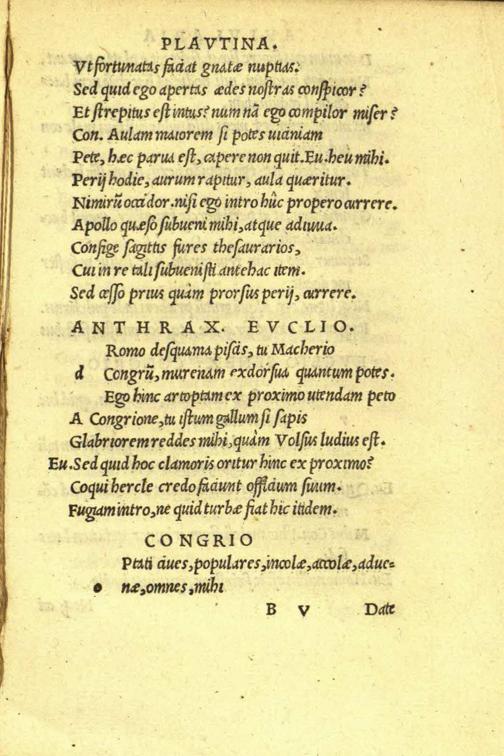 PLAVTINA.
Vt fortunatas faciat gnatæ nuptias.
Sed quid ego apertas ædes nostras conspicor?
Et strepitus est intus? num nā ego compilor miser?
Con. Aulam maiorem si potes uiciniam
Pete, hæc parua est, capere non quit. Eu. heu mihi.
Perij hodie, aurum rapitur, aula quæritur.
Nimirū occidor. nisi ego intro hûc propero currere.
Apollo quæso subueni mihi, atque adiuua.
Confige sagittis fures thesaurarios,
Cui in re tali subuenisti antehac item.
Sed cesso prius quàm prorsus perij, currere.
ANTHRAX. EVCLIO.
Romo desquama piscis, tu Macherio
d Congrū, murenam exdorsua quantum potes.
Ego hinc artoptam ex proximo utendam peto
A Congrione, tu istum gallum si sapis
Glabriorem reddes mihi, quàm Volsus ludius est.
Eu. Sed quid hoc clamoris oritur hinc ex proximo?
Coqui hercle credo faciunt officium suum.
Fugiam intro, ne quid turbæ fiat hic itidem.
CONGRIO
Ptati ciues, populares, incolæ, accolæ, adue-
o næ, omnes, mihi
B V Date